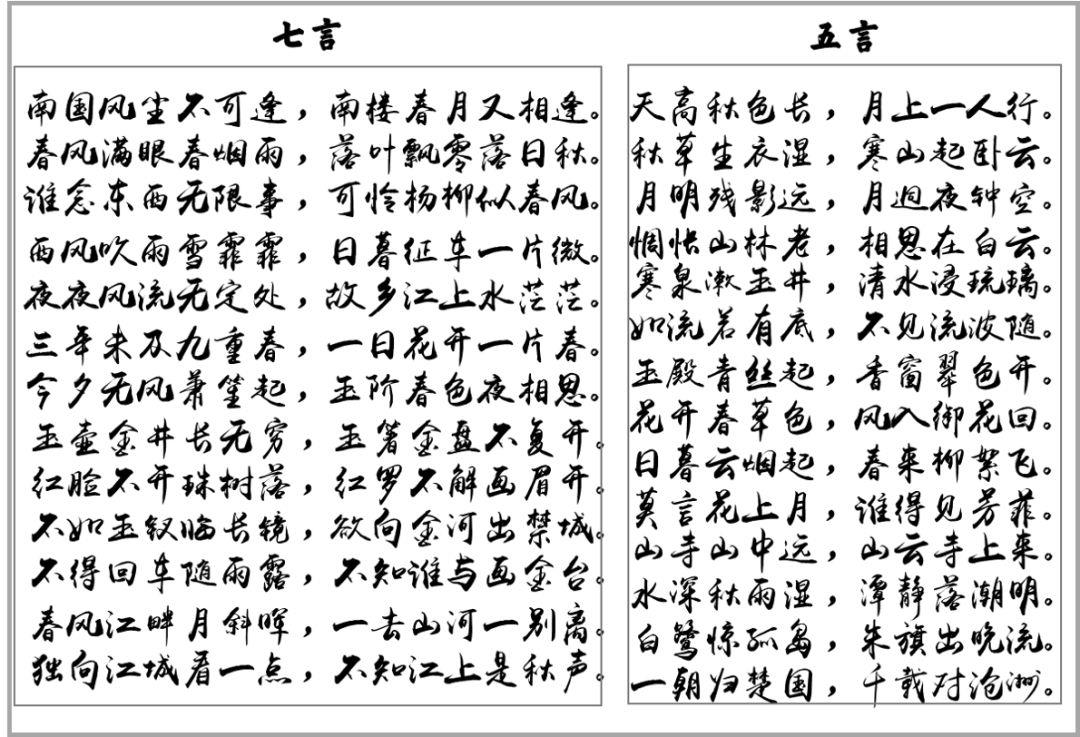 七言
南国风尘不可逢，南楼春月又相逢。
春风满眼春烟雨，落叶飘零落日秋。
谁念东西无限事，可怜杨柳似春风。
西风吹雨雪霏霏，日暮征车一片微。
夜夜风流无定处，故乡江上水茫茫。
三年未及九重春，一日花开一片春。
今夕无风萧笙起，玉阶春色夜相思。
玉壶金井长无穷，玉箸金盘不复开。
红脸不开珠树落，红罗不解画眉开。
不如玉钗临长镜，欲向金河出禁城。
不得回车随雨露，不知谁与画金台。
春风江畔月斜晖，一去山河一别离。
独向江城看一点，不知江上是秋声。
五言
天高秋色长，月上一人行。
秋草生衣湿，寒山起卧云。
月明残影远，月迥夜钟空。
惆怅山林老，相思在白云。
寒泉漱玉井，清水浸琉璃。
如流若有底，不见流波随。
玉殿青丝起，香窗翠色开。
花开春草色，风入御花回。
日暮云烟起，春来柳絮飞。
莫言花上月，谁得见芳菲。
山寺山中远，山云寺上来。
水深秋雨湿，潭静落潮明。
白鹭惊孤岛，朱旗出晚流。
一朝归楚国，千载对沧洲。